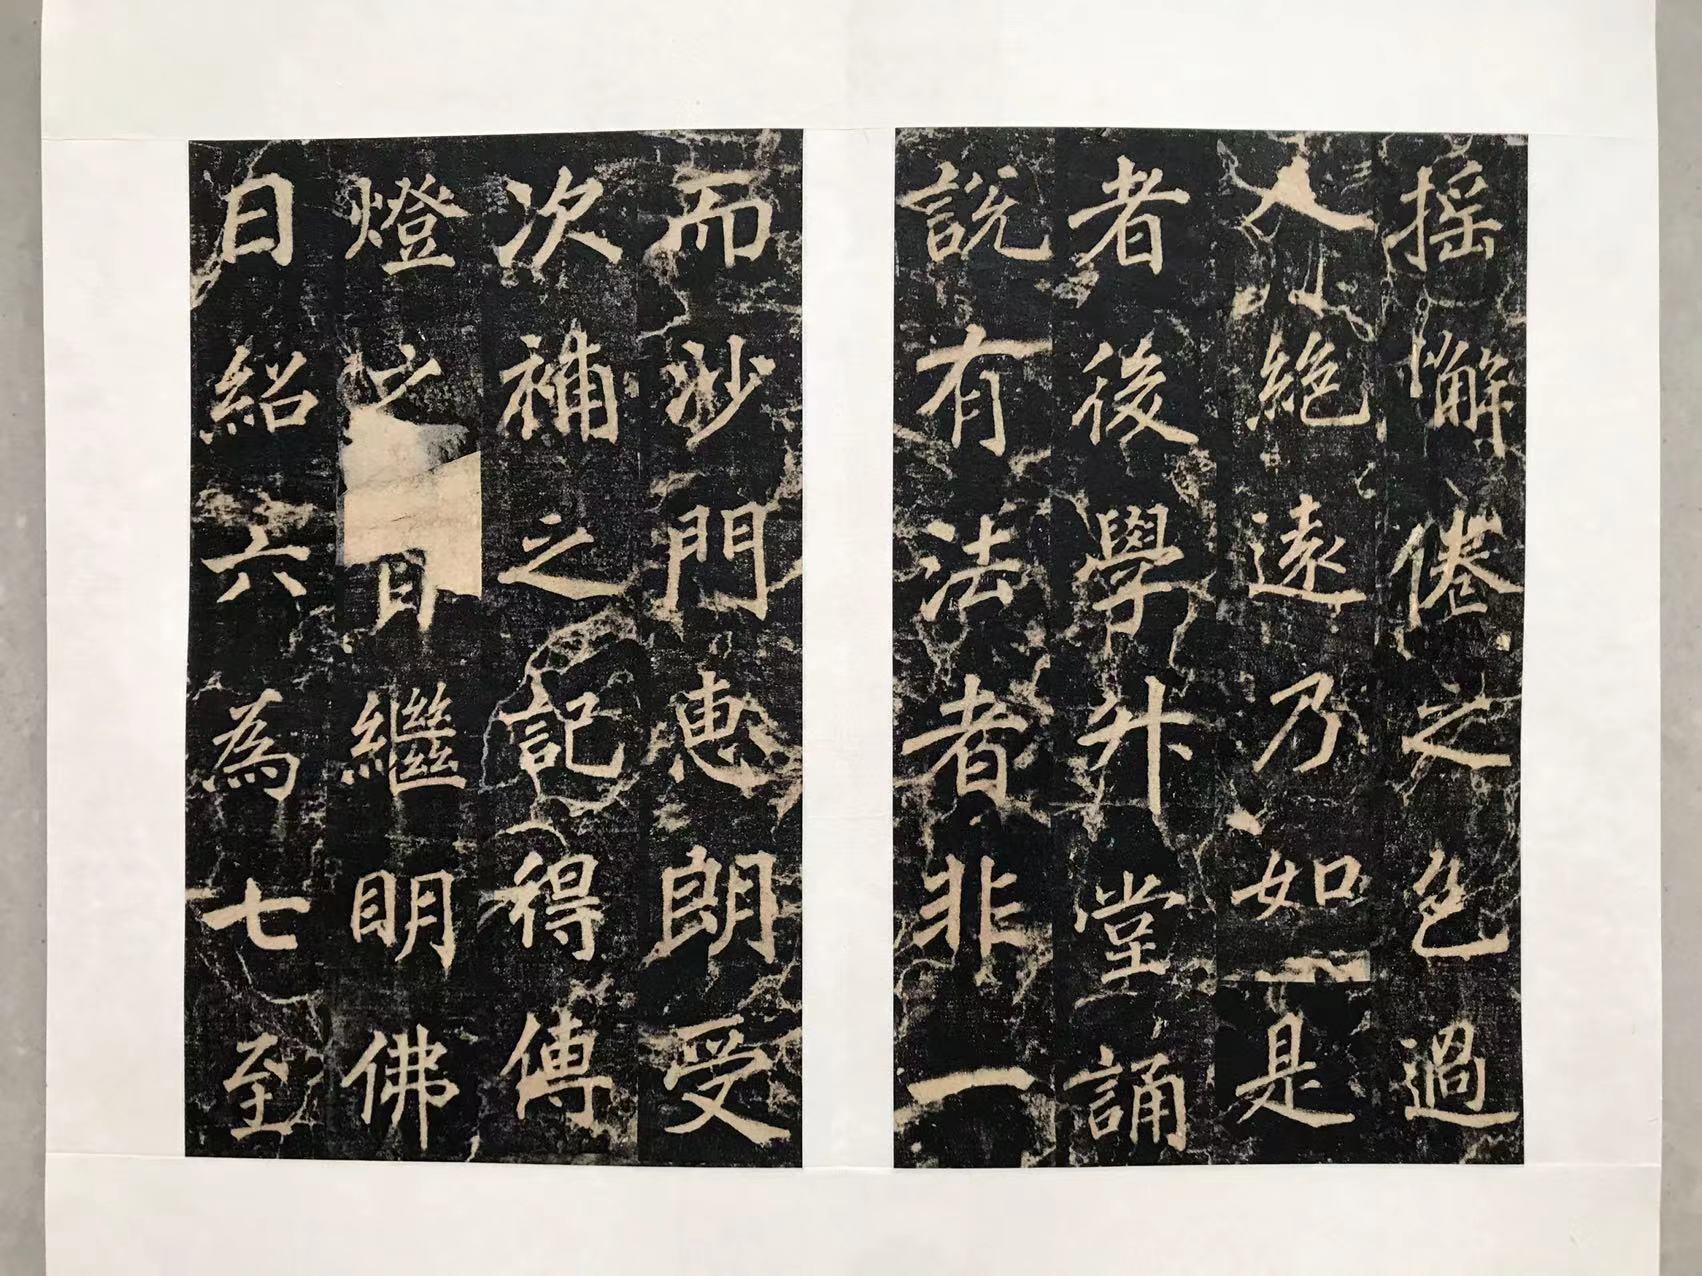 搖懈倦之色過
人絶遠乃如是
者後學升堂誦
說有法者非一
而沙門惠朗受
次補之記得傳
燈之目繼明佛
日紹六為七至